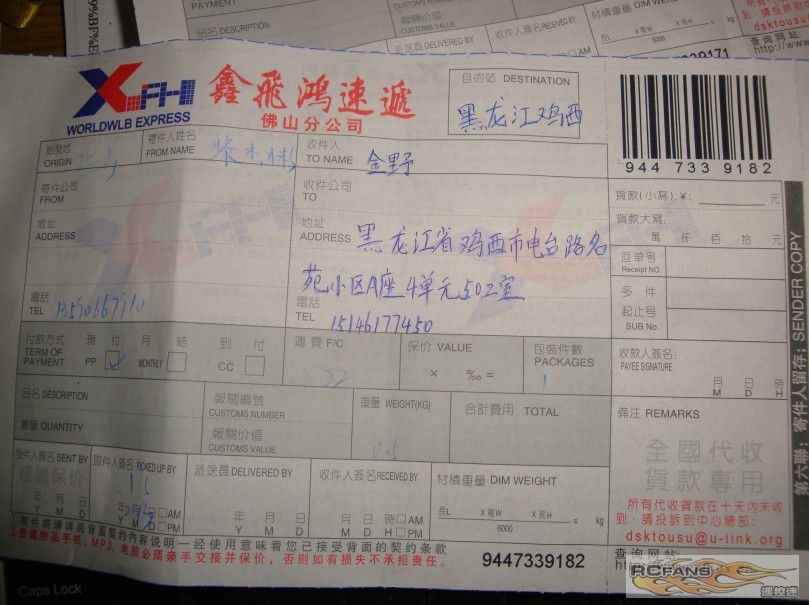 PAYMENT
品名 DESCRIPTION
報關价值
CUSTOMS VALUE
派送員 DELIVERED BY
收件人簽名
材積重量 DIM WEIGHT
長L X 寬W X 高H = kg
6000
9447339171
dsktousu
查询网站:
XFH 鑫飛鴻速遞
WORLDWLB EXPRESS
佛山分公司
目的站 DESTINATION
黑龙江鸡西
944 733 9182
始發地
ORIGIN
寄件人姓名
FROM NAME
收件人
TO NAME 金野
寄件公司
FROM
收件公司
TO
地址
ADDRESS
地址
ADDRESS 黑龙江省鸡西市电台路名
苑小区A座4单元502室
電話
TEL 13590667910
電話
TEL 15146177450
貨款(小寫):¥: 元
貨款大寫:
萬 仟 佰 拾 元
回單号
Receipt NO.
多件
起止号
SUB No.
付款方式 現付 月結 到付
TERM OF PAYMENT PP MONTHLY CC
運費 F/C
22
保价 VALUE
× ‰ =
包裝件數
PACKAGES
1
收款人簽名:
PAYEE SIGNATURE
月 日 時
M D H
品名 DESCRIPTION
數量 QUANTITY
報關編號
CUSTOMS NUMBER
報關价值
CUSTOMS VALUE
重量 WEIGHT(KG)
0.5
合計費用 TOTAL
備注 REMARKS
全國代收
貨款專用
所有代收貨款在十天内未收
到,請投訴到中心總部:
dsktousu@u-link.org
查询网站:
發件人簽名 SENT BY
建議保价
年 月 日
Y M D
取件人簽名 PICKED UP BY
年 月 日 AM
Y M D PM
派送員 DELIVERED BY
年 月 日
Y M D
收件人簽名 RECEIVED BY
月 日 時 AM
M D H PM
材積重量 DIM WEIGHT
長L X 寬W X 高H = kg
6000
寄件前请详阅背面契约内容说明一经使用意味着您已接受背面的契约条款
贵重物品手机、MP3、电脑必须亲手交接并保价,否则如有损失不承担责任。
9447339182
第六聯:寄件人留存:SENDER COPY
Caps Lock
RCFANS
遥控迷